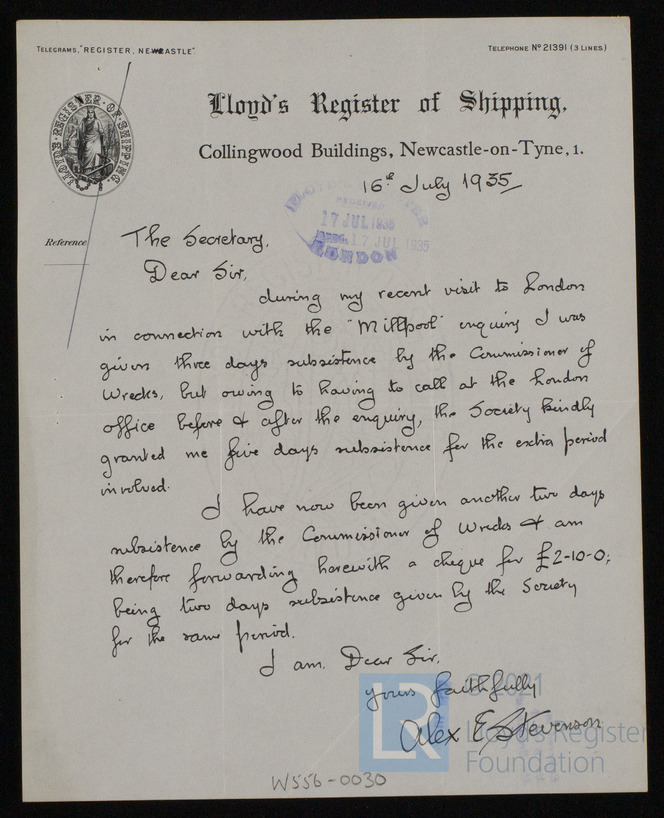 TELEGRAMS, "REGISTER, NEWCASTLE"
TELEPHONE Nº 21391 (3 LINES)
LLOYD'S REGISTER OF SHIPPING.
Lloyd's Register of Shipping,
Collingwood Buildings, Newcastle-on-Tyne, 1.
16th July 1935
RECEIVED
17 JUL 1935
17 JUL 1935
LONDON
Reference
The Secretary,
Dear Sir,
during my recent visit to London
in connection with the "Millpool" enquiry I was
given three days subsistence by the Commissioner of
Wrecks, but owing to having to call at the London
office before & after the enquiry, the Society kindly
granted me five days subsistence for the extra period
involved.
I have now been given another two days
subsistence by the Commissioner of Wrecks & am
therefore forwarding herewith a cheque for £2-10-0;
being two days subsistence given by the Society
for the same period.
I am. Dear Sir.
yours faithfully
Alex E Stevenson
2021
LR
Lloyd's Register
Foundation
W556-0030